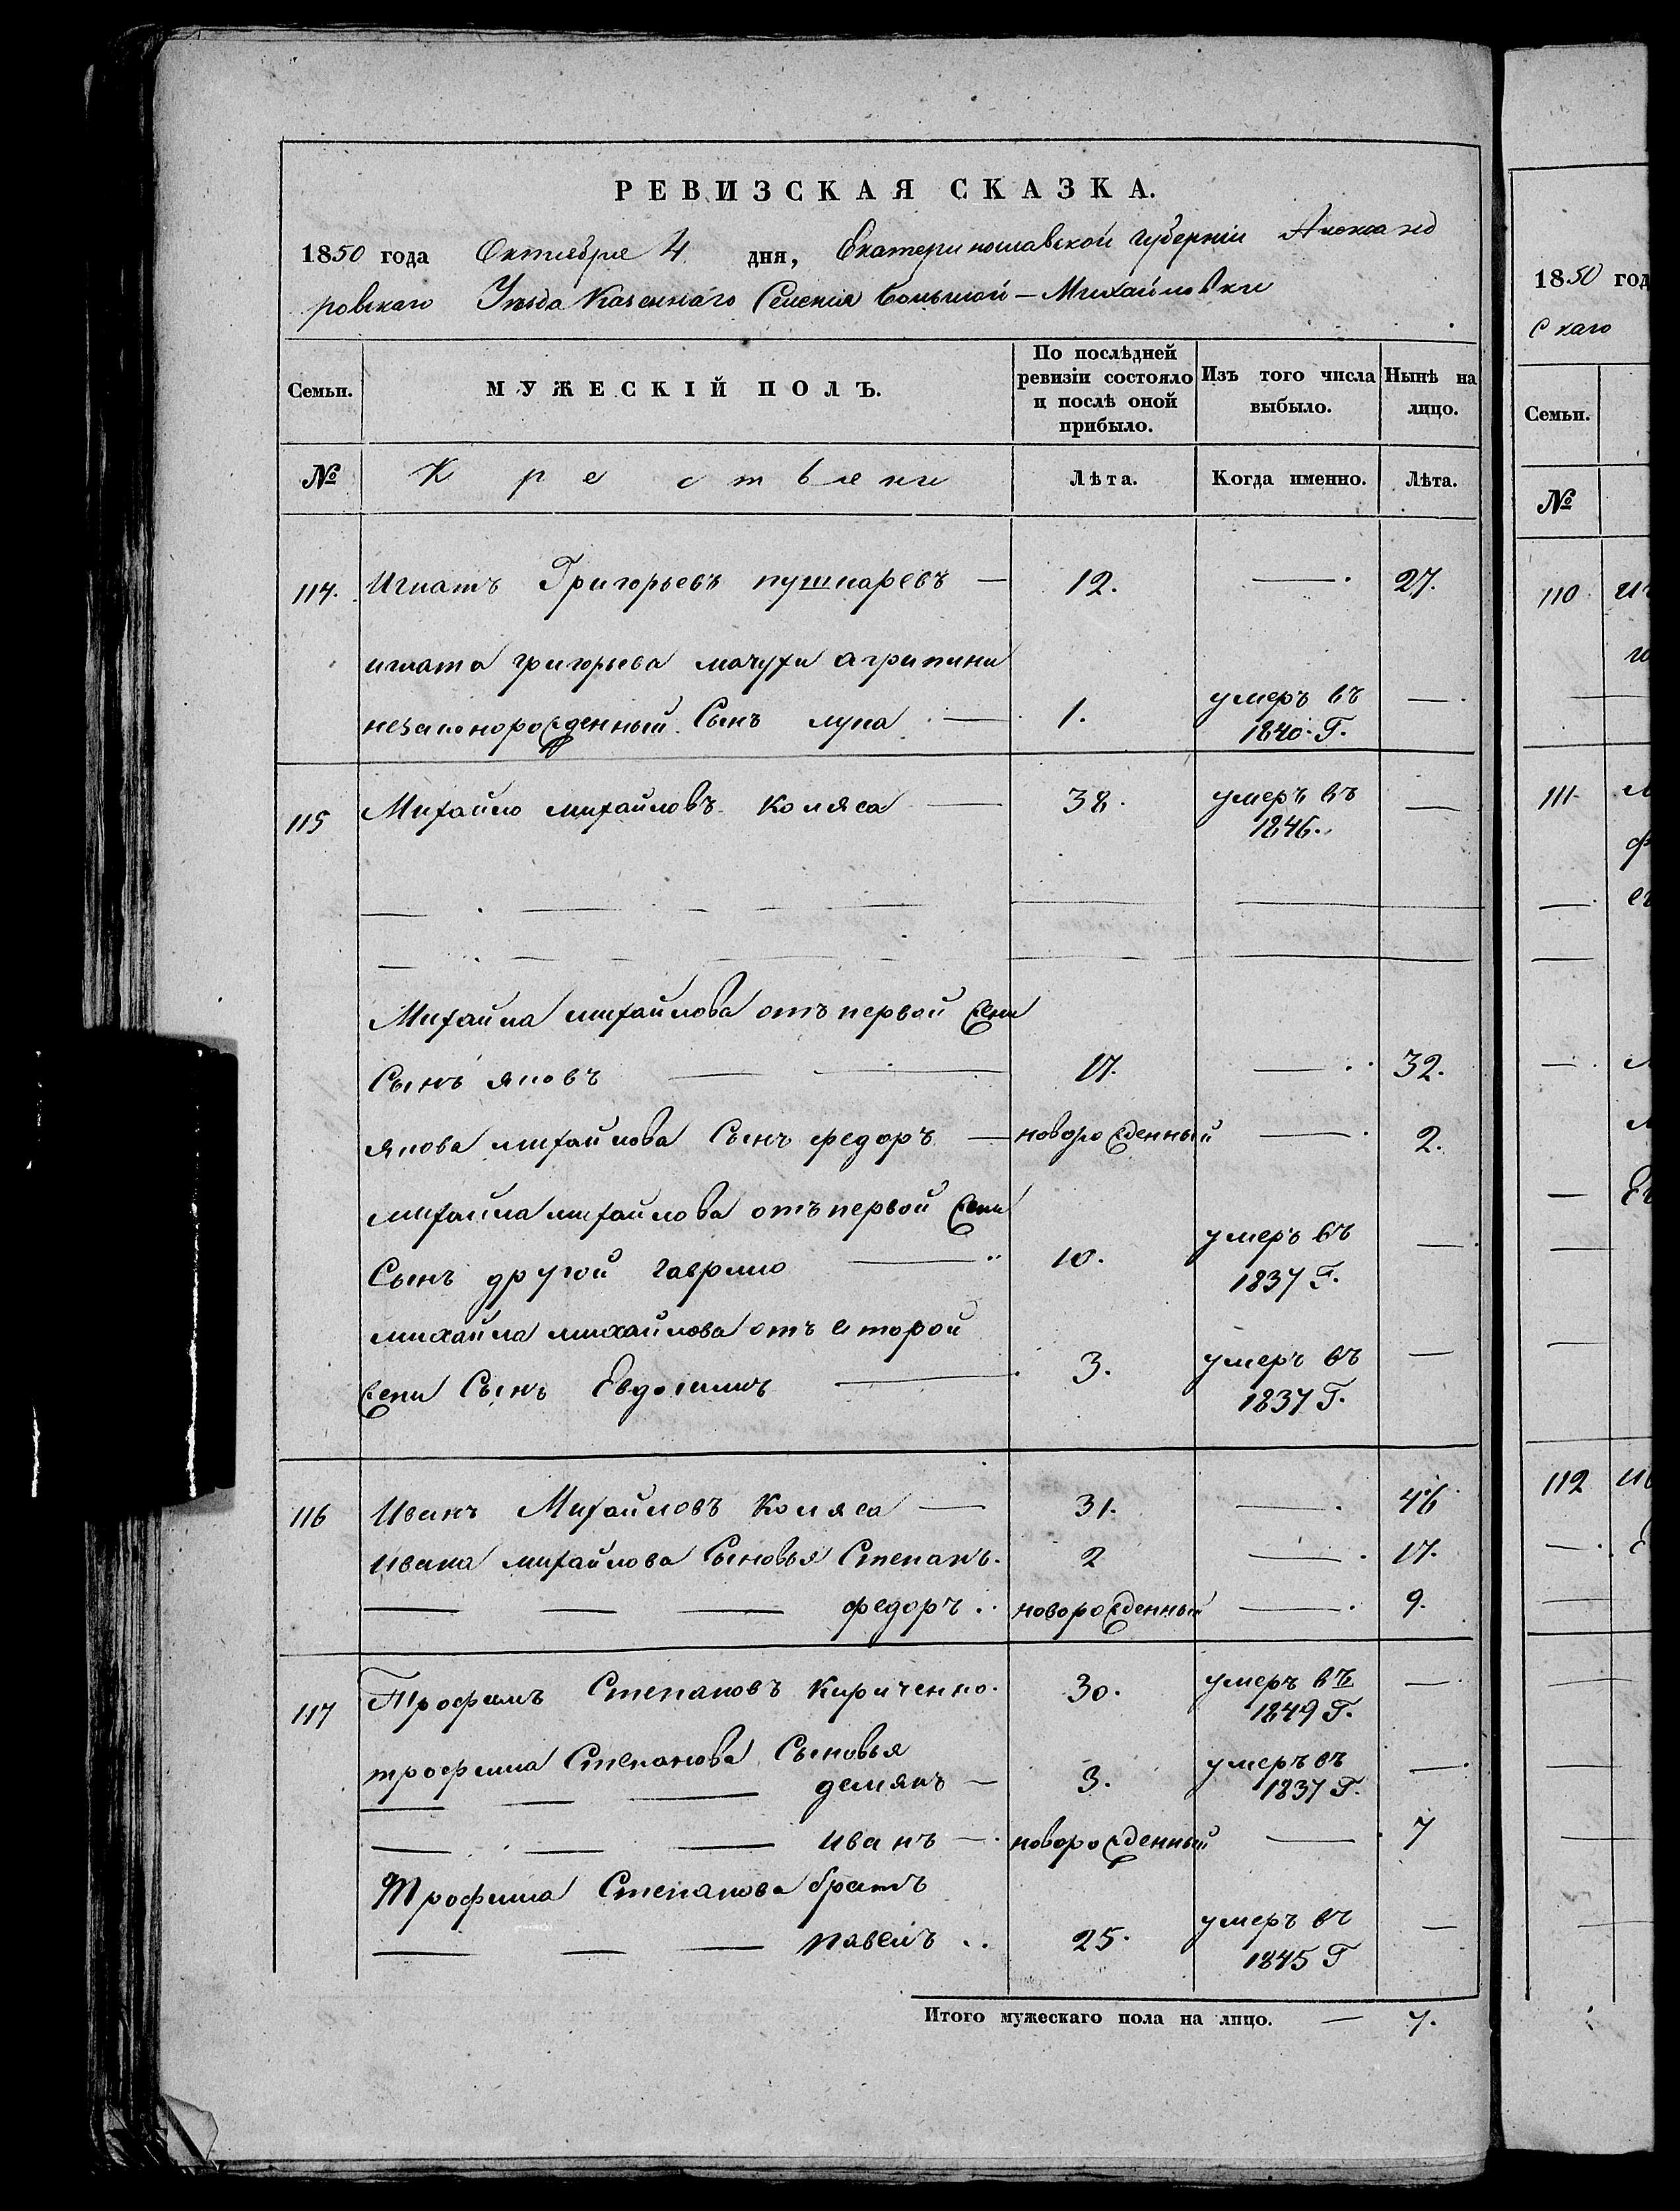 РЕВИЗСКАЯ СКАЗКА.
1850 года Октября 4 дня, Екатеринославской губерніи Александ
ровскаго Уѣзда Казеннаго Селенія Большой – Михайловки
Семьи. МУЖЕСКІЙ ПОЛЪ. По послѣдней ревизіи состояло и послѣ оной прибыло. Изъ того числа выбыло. Нынѣ на лицо.
№ Крестьяни Лѣта. Когда именно. Лѣта.
114. Игнатъ Григорьевъ пушкаревъ — 12. — 27.
игната григорьева мачухи агрипини
незаконорожденный Сынъ лука — 1. умеръ въ 1840. Г. —
115 Михайло михайловъ Коляса — 38. умеръ въ 1846. —
Михайла михайлова отъ первой жени
Сынъ яковъ — 17. — 32.
якова михайлова Сынъ федоръ — новорожденный — 2.
михайла михайлова отъ первой жени
Сынъ другой гаврило — 10. умеръ въ 1837 Г. —
михайла михайлова отъ второй
жени Сынъ Евдокимъ — 3. умеръ въ 1837 Г. —
116 Иванъ Михайловъ Коляса — 31. — 46
ивана михайлова Сыновья Степанъ. 2 — 17.
— — — федоръ.. новорожденный — 9.
117 Трофимъ Степановъ Кириченко. 30. умеръ въ 1849 Г. —
трофима Степанова Сыновья
— — — демянъ — 3. умеръ въ 1837 Г. —
— — — иванъ — новорожденный — 7
Трофима Степанова братъ
— — — павелъ .. 25. умеръ въ 1845 Г —
Итого мужескаго пола на лицо. — 7.
1850 год
скаго
Семьи.
№
110
111
112